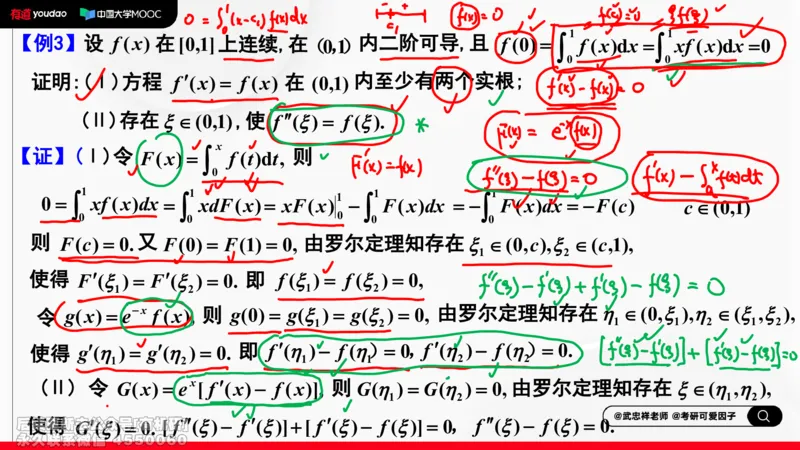 有道youdao 中国大学MOOC
0 = ∫₀¹(x-c₁)f(x)dx
f(x)=0
f(c)=0 ξf(ξ)
【例3】设 f(x) 在[0,1]上连续, 在 (0,1) 内二阶可导, 且 f(0) = ∫₀¹ f(x)dx = ∫₀¹ xf(x)dx = 0
证明: (Ⅰ)方程 f′(x) = f(x) 在 (0,1) 内至少有两个实根;
f′(x) - f(x) = 0
(Ⅱ)存在 ξ∈(0,1), 使 f″(ξ) = f(ξ). *
F(x) = e⁻ˣf(x)
【证】(Ⅰ)令 F(x) = ∫₀ˣ f(t)dt, 则
F′(x) = f(x)
f″(ξ) - f(ξ) = 0
f′(x) - ∫₀ˣ f(x)dt
0 = ∫₀¹ xf(x)dx = ∫₀¹ xdF(x) = xF(x)|₀¹ - ∫₀¹ F(x)dx = -∫₀¹ F(x)dx = -F(c) c∈(0,1)
则 F(c) = 0. 又 F(0) = F(1) = 0, 由罗尔定理知存在 ξ₁∈(0,c), ξ₂∈(c,1),
使得 F′(ξ₁) = F′(ξ₂) = 0. 即 f(ξ₁) = f(ξ₂) = 0,
f″(ξ) - f′(ξ) + f′(ξ) - f(ξ) = 0
令 g(x) = e⁻ˣ f(x), 则 g(0) = g(ξ₁) = g(ξ₂) = 0, 由罗尔定理知存在 η₁∈(0,ξ₁), η₂∈(ξ₁,ξ₂),
使得 g′(η₁) = g′(η₂) = 0. 即 f′(η₁) - f(η₁) = 0, f′(η₂) - f(η₂) = 0.
[f″(ξ) - f′(ξ)] + [f′(ξ) - f(ξ)] = 0
(Ⅱ) 令 G(x) = eˣ[f′(x) - f(x)] 则 G(η₁) = G(η₂) = 0, 由罗尔定理知存在 ξ∈(η₁,η₂),
@武忠祥老师 @考研可爱因子
使得 G′(ξ) = 0. [f″(ξ) - f′(ξ)] + [f′(ξ) - f(ξ)] = 0, f″(ξ) - f(ξ) = 0.
永久联系微信 4550060